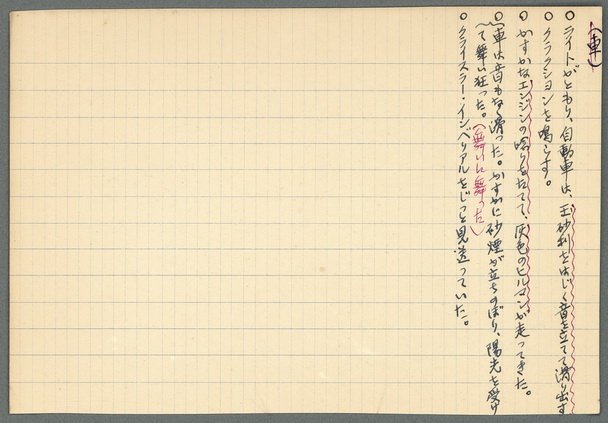 （車）
○ ライトがともり、自動車は、玉砂利をはじく音を立てて滑り出す
○ クラクションを鳴らす。
○ かすかなエンジンの唸りをたてて、灰色のヒルマンが走ってきた。
○ （車は音もなく滑った。かすかに砂煙が立ちのぼり、陽光を受け
て舞い狂った。（舞いに舞った）
○ クライスラー・インペリアルをじっと見送っていた。